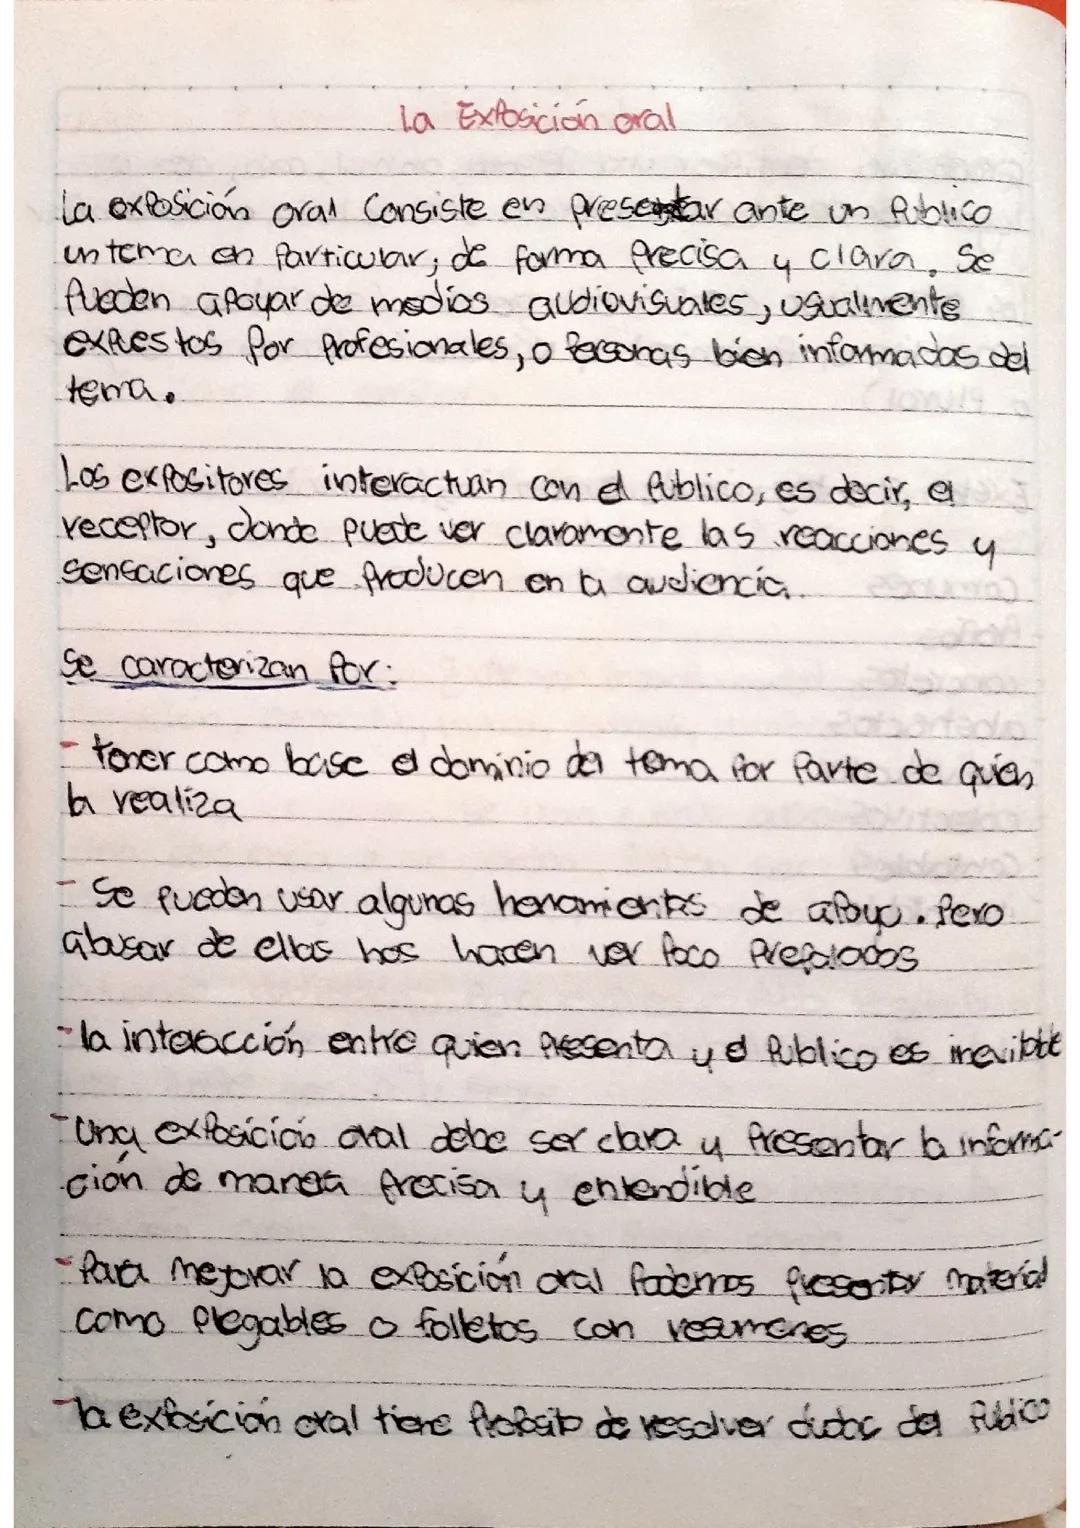 La Exposición oral
La exposición oral Consiste en presentar ante un Público
un tema en Particular; de forma Precisa y clara. Se
Pueden apoyar de medios audiovisuales, usualmente
expuestos Por Profesionales, o Personas bien informadas del
tema.
Los expositores interactuan con el Público, es decir, el
receptor, donde puede ver claramente las reacciones y
sensaciones que Producen en la audiencia.
Se caracterizan Por:
- tener como base el dominio del tema Por Parte de quien
la realiza
- Se pueden usar algunas herramientas de apoyo. Pero
abusar de ellas nos hacen ver Poco Preparados
- la interacción entre quien Presenta y el Público es inevitable
- Una exposición oral debe ser clara y Presentar la informa-
ción de manera Precisa y entendible
- Para mejorar la exposición oral Podemos Presentar material
como Plegables o folletos con resumenes
- la exposición oral tiene Proposito de resolver dudas del Público